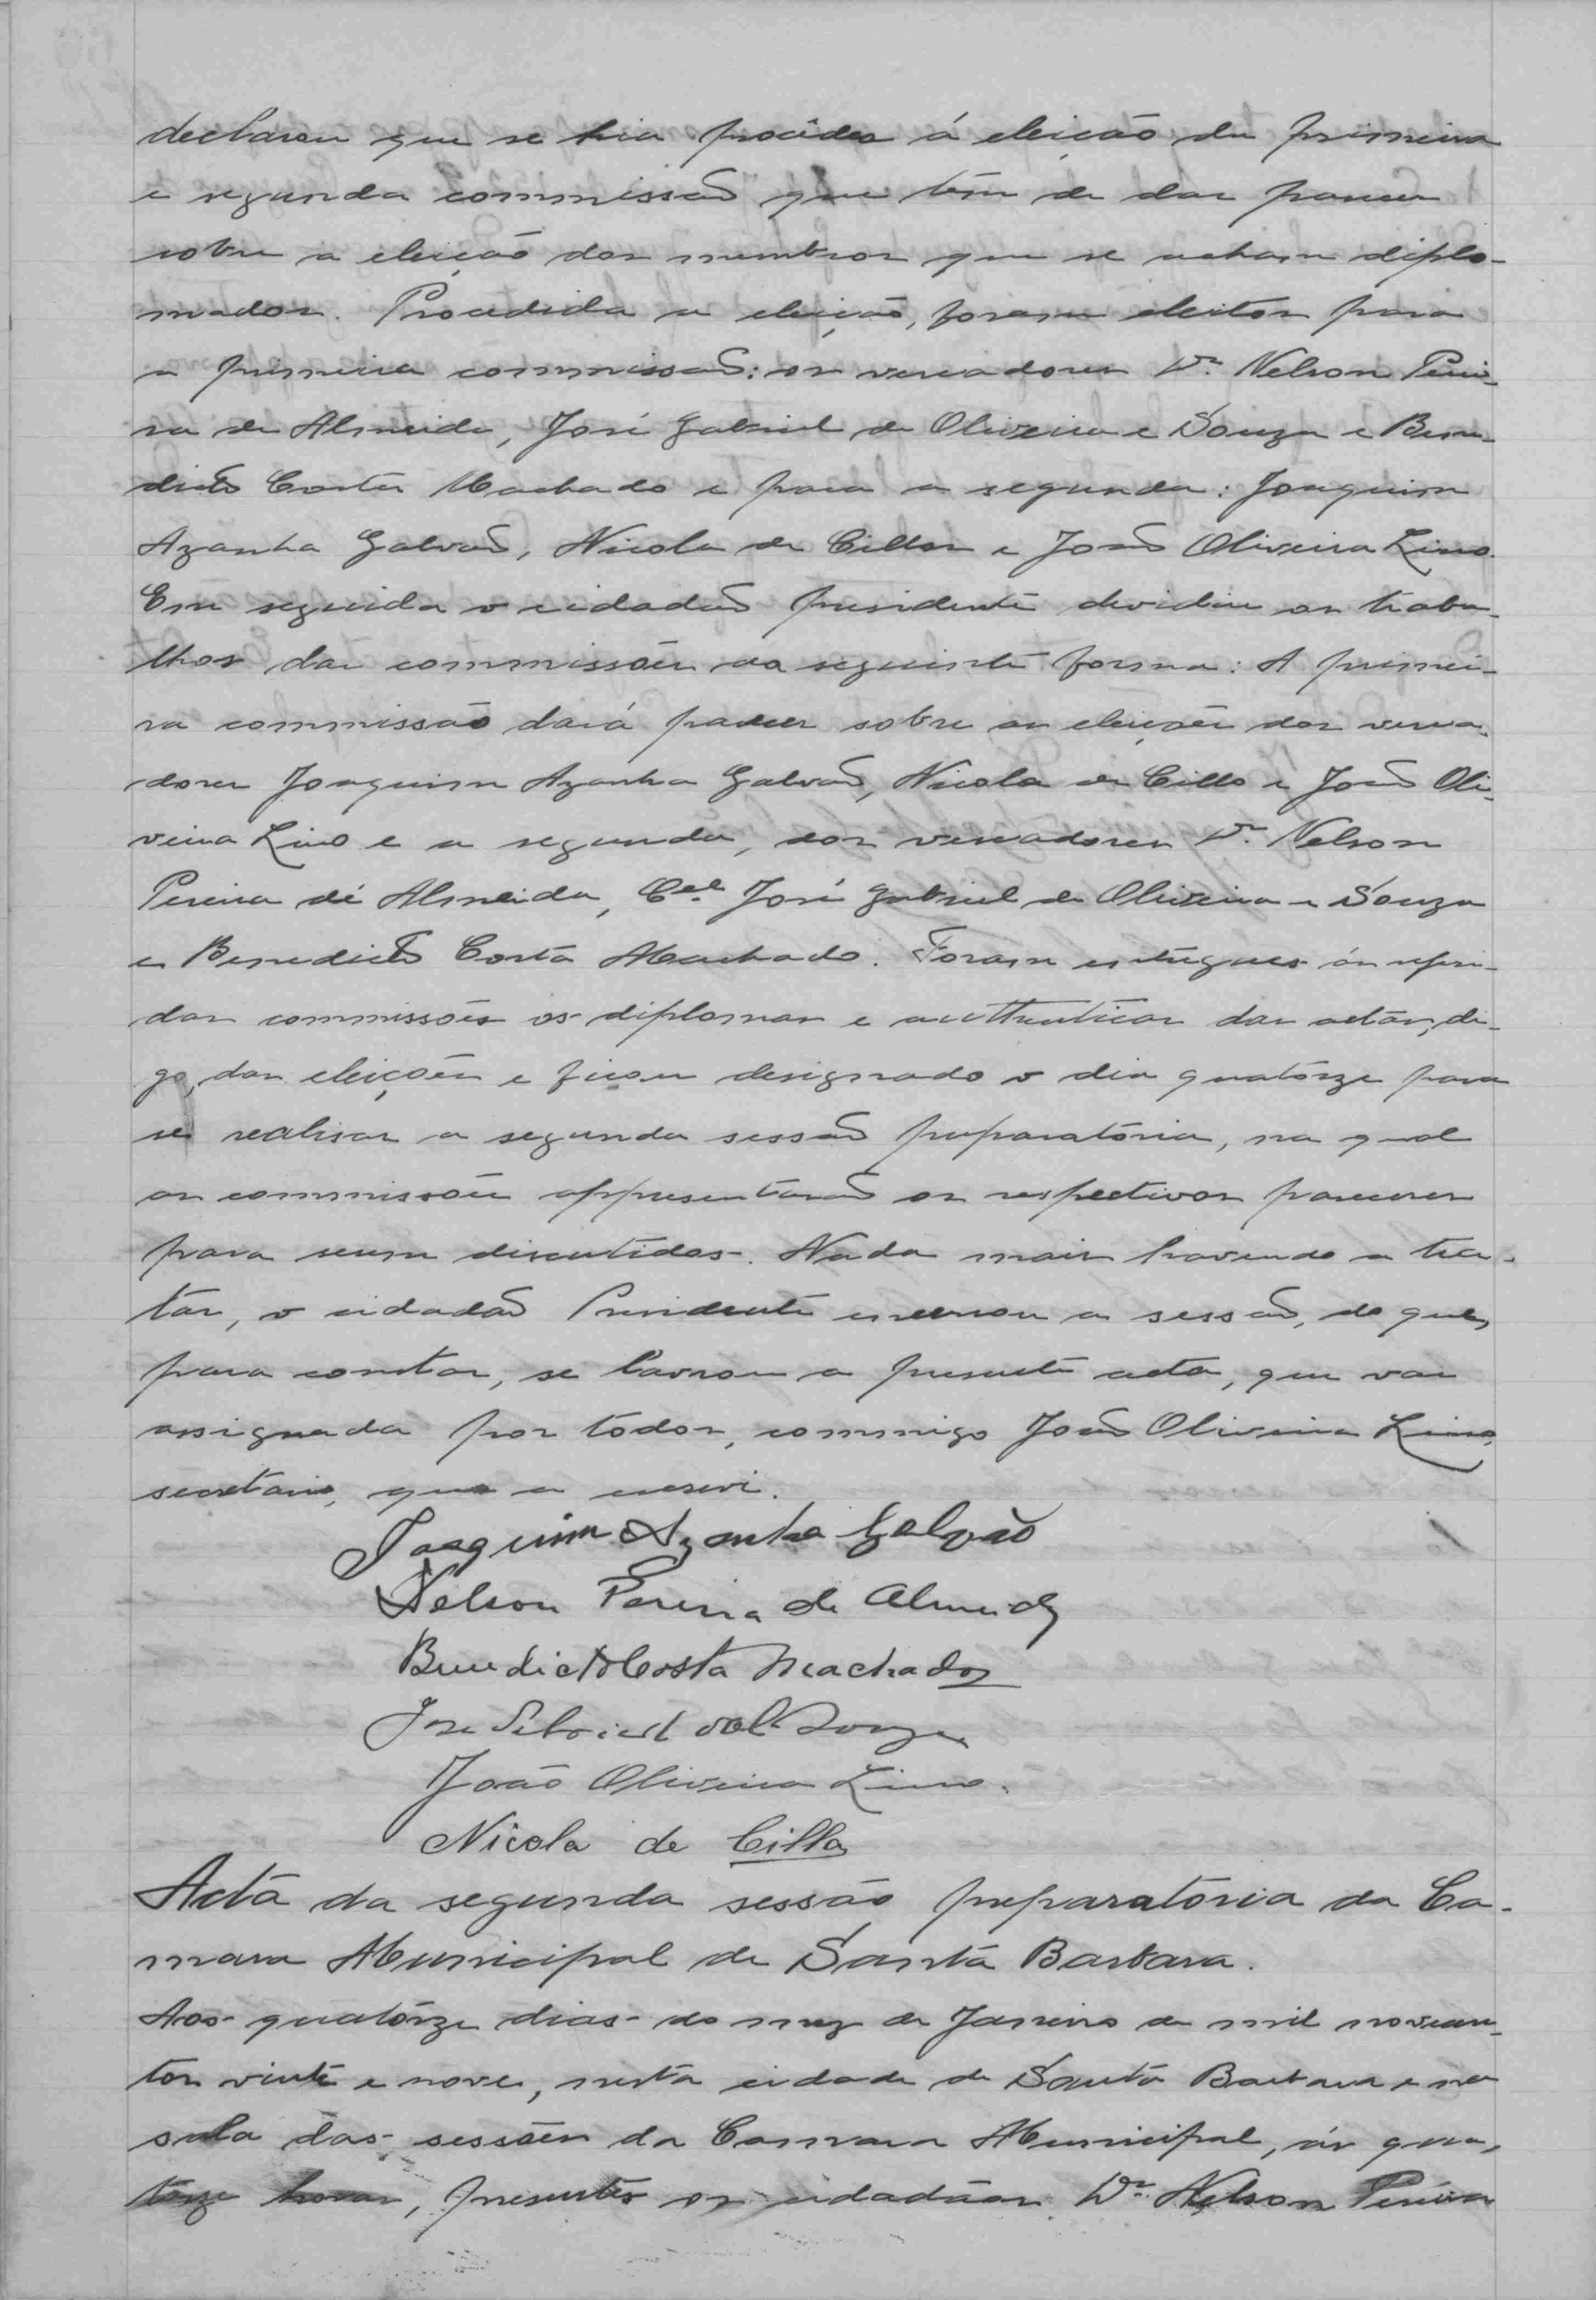 declarou que se hia proceder á eleição da primeira
e segunda commissão que têm de dar parecer
sobre a eleição dos membros que se acham diplo-
mados. Procedida a eleição, foram eleitos para
a primeira commissão: os vereadores Dr. Nelson Perei-
ra de Almeida, José Gabriel de Oliveira e Souza e Bene-
dicto Costa Machado e para a segunda: Joaquim
Azanha Galvão, Nicola de Cillo e João Oliveira Lino.
Em seguida o cidadão presidente devidiu os traba-
lhos das commissões da seguinte forma: A primei-
ra commissão dará parecer sobre as eleições dos verea-
dores Joaquim Azanha Galvão, Nicola de Cillo e João Oli-
veira Lino e a segunda, dos vereadores Dr. Nelson
Pereira de Almeida, Cel. José Gabriel de Oliveira e Souza
e Benedicto Costa Machado. Foram entregues ás referi-
das commissões os diplomas e authenticas das actas, di-
go, das eleições e ficou designado o dia quatorze para
se realisar a segunda sessão preparatoria, na qual
as commissões appresentarão os respectivos pareceres
para serem discutidos. Nada mais havendo a tra-
tar, o cidadão Presidente encerrou a sessão, do que,
para constar, se lavrou a presente acta, que vae
assignada por todos, commigo João Oliveira Lino,
secretario, que a escrevi.
Joaquim Azanha Galvão
Nelson Pereira de Almeida
Benedicto Costa Machado
José Gabriel de Souza
João Oliveira Lino.
Nicola de Cillo
Acta da segunda sessão preparatoria da Ca-
mara Municipal de Santa Barbara.
Aos quatorze dias do mez de Janeiro de mil novecen-
tos vinte e nove, nesta cidade de Santa Barbara e na
sala das sessões da Camara Municipal, ás qua-
torze horas, presentes os cidadãos Dr. Nelson Pereira